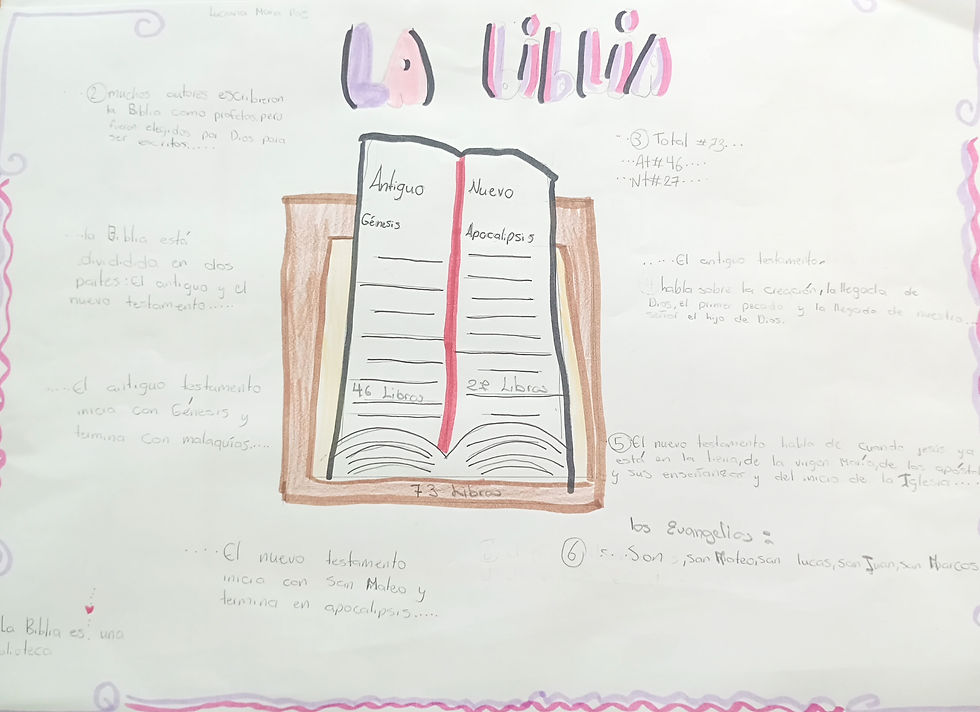 Luciana Maria Paz
LA bibLiA
....② muchos autores escribieron
la Biblia como profetas, pero
fueron elegidos por Dios para
ser escritos.....
...la Biblia está
dividida en dos
partes: El antiguo y el
nuevo testamento.....
.....El antiguo testamento
inicia con Génesis y
termina con malaquías....
....El nuevo testamento
inicia con San Mateo y
termina en apocalipsis.....
La Biblia es: una
blioteca
Antiguo
Génesis
46 Libros
Nuevo
Apocalipsis
27 Libros
73 Libros
...③ Total #73...
...At#46....
...Nt#27....
.....El antiguo testamento.
habla sobre la creación, la llegada de
Dios, el primer pecado y la llegada de nuestro...
señor el hijo de Dios.
⑤ El nuevo testamento habla de cuando jesús ya
está en la tierra, de la virgen María, de los apóst
y sus enseñanzas y del inicio de la Iglesia....
los Evangelios:
⑥ s...Son, san Mateo, san lucas, san Juan, san Marcos